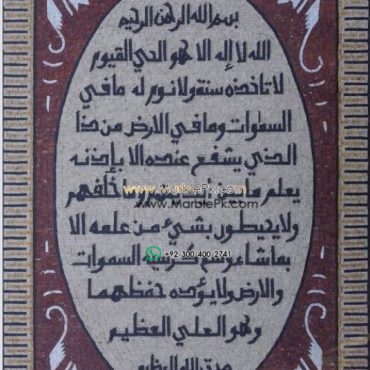 بسم الله الرحمن الرحيم
الله لا إله الا هو الحي القيوم
لا تاخذه سنة ولا نوم له ما في
السموات وما في الارض من ذا
الذي يشفع عنده الا بإذنه
يعلم ما خلفهم
www.MarblePk.com
www.MarblePk.com
ولا يحيطون بشيء من علمه الا
بما شاء وسع كرسيه السموات
+92 300 400 2741
والارض ولا يؤده حفظهما
وهو العلي العظيم
صدق الله العظيم